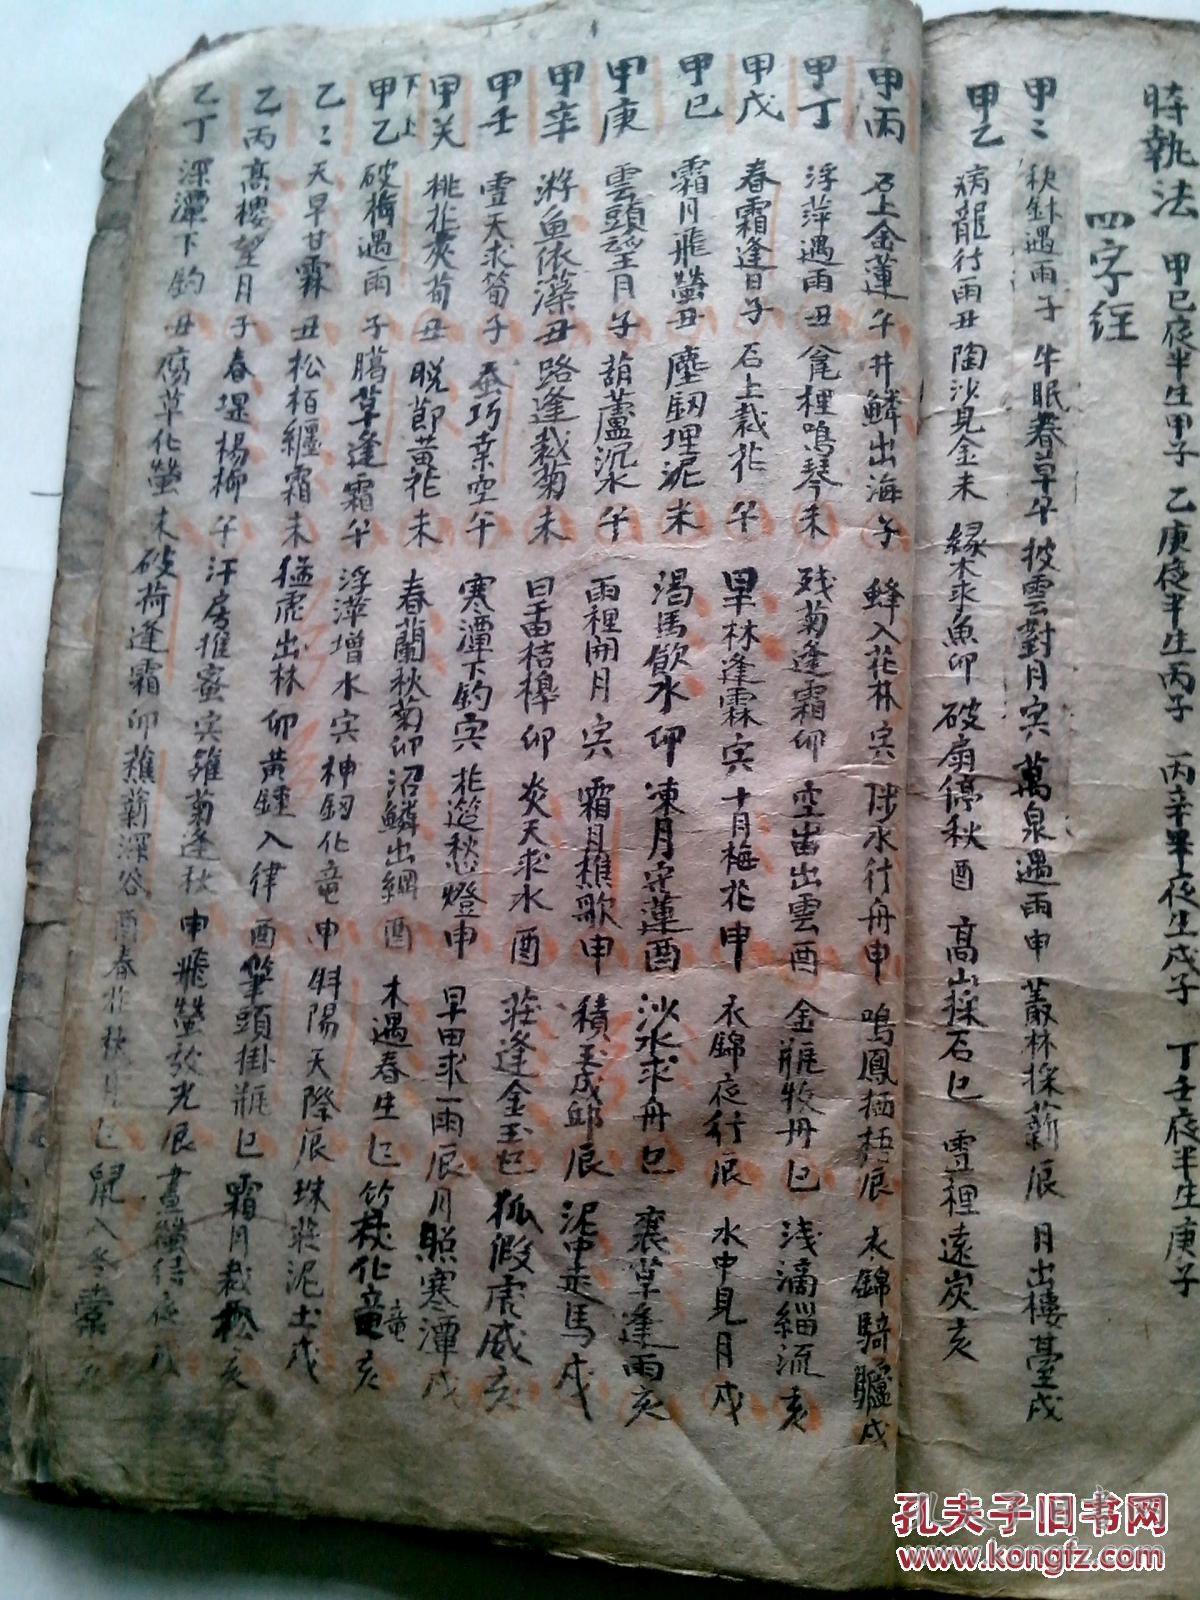 時執法 甲巳夜半生甲子 乙庚夜半生丙子 丙辛畢夜生戊子 丁壬夜半生庚子
四字经
甲〻 秋 遇雨子 牛眠春草午 披雲對月寅 萬泉遇雨申 叢林採薪辰 月出樓臺戌
甲乙 病龍行雨丑 陶沙見金未 緣木求魚卯 破扇停秋酉 高山採石巳 雪裡遠炭亥
甲丙 石上金蓮午 井鱗出海子 蜂入花林寅 陟水行舟申 鳴鳳栖梧辰 衣錦騎驢戌
甲丁 浮萍遇雨丑 瓮裡鳴琴未 残菊逢霜卯 空出雲酉 金瓶牧丹巳 浅満細流亥
甲戊 春霜逢日子 石上栽花午 旱林逢霖寅 十月梅花申 衣錦夜行辰 水中見月戌
甲巳 霜月飛螢丑 塵釼埋泥未 渴馬飲水卯 凍月 蓮酉 沙水求舟巳 衰草逢雨亥
甲庚 雲頭望月子 葫蘆沉水午 雨裡開月寅 霜月樵歌申 積玉成邱辰 泥中走馬戌
甲辛 游魚依藻丑 路逢栽菊未 旱苗桔橰卯 炎天求水酉 莊逢金玉巳 狐假虎威亥
甲壬 雪天求筍子 巧 空午 寒潭下釣寅 花燈申 早田求雨辰 月照寒潭戌
甲癸 桃花 丑 脱節黄花未 春蘭秋菊卯 沼鱗出網酉 木遇春生巳 竹杖化竜亥
下上甲乙 破梅遇雨子 腊草逢霜午 浮萍增水寅 神釼化竜申 斜陽天際辰 珠莊泥土戌
乙〻 天旱甘霖丑 松栢纏霜未 猛虎出林卯 黄鍾入律酉 筆頭掛瓶巳 霜月栽松亥
乙丙 高樓望月子 春堤楊柳午 房推蜜寅 籬菊逢秋申 飛螢放光辰 待夜戌
乙丁 深潭下釣丑 腐草化螢未 破荷逢霜卯 樵薪深谷酉 春花秋月巳 鼠入冬
孔夫子旧书网
www.kongfz.com